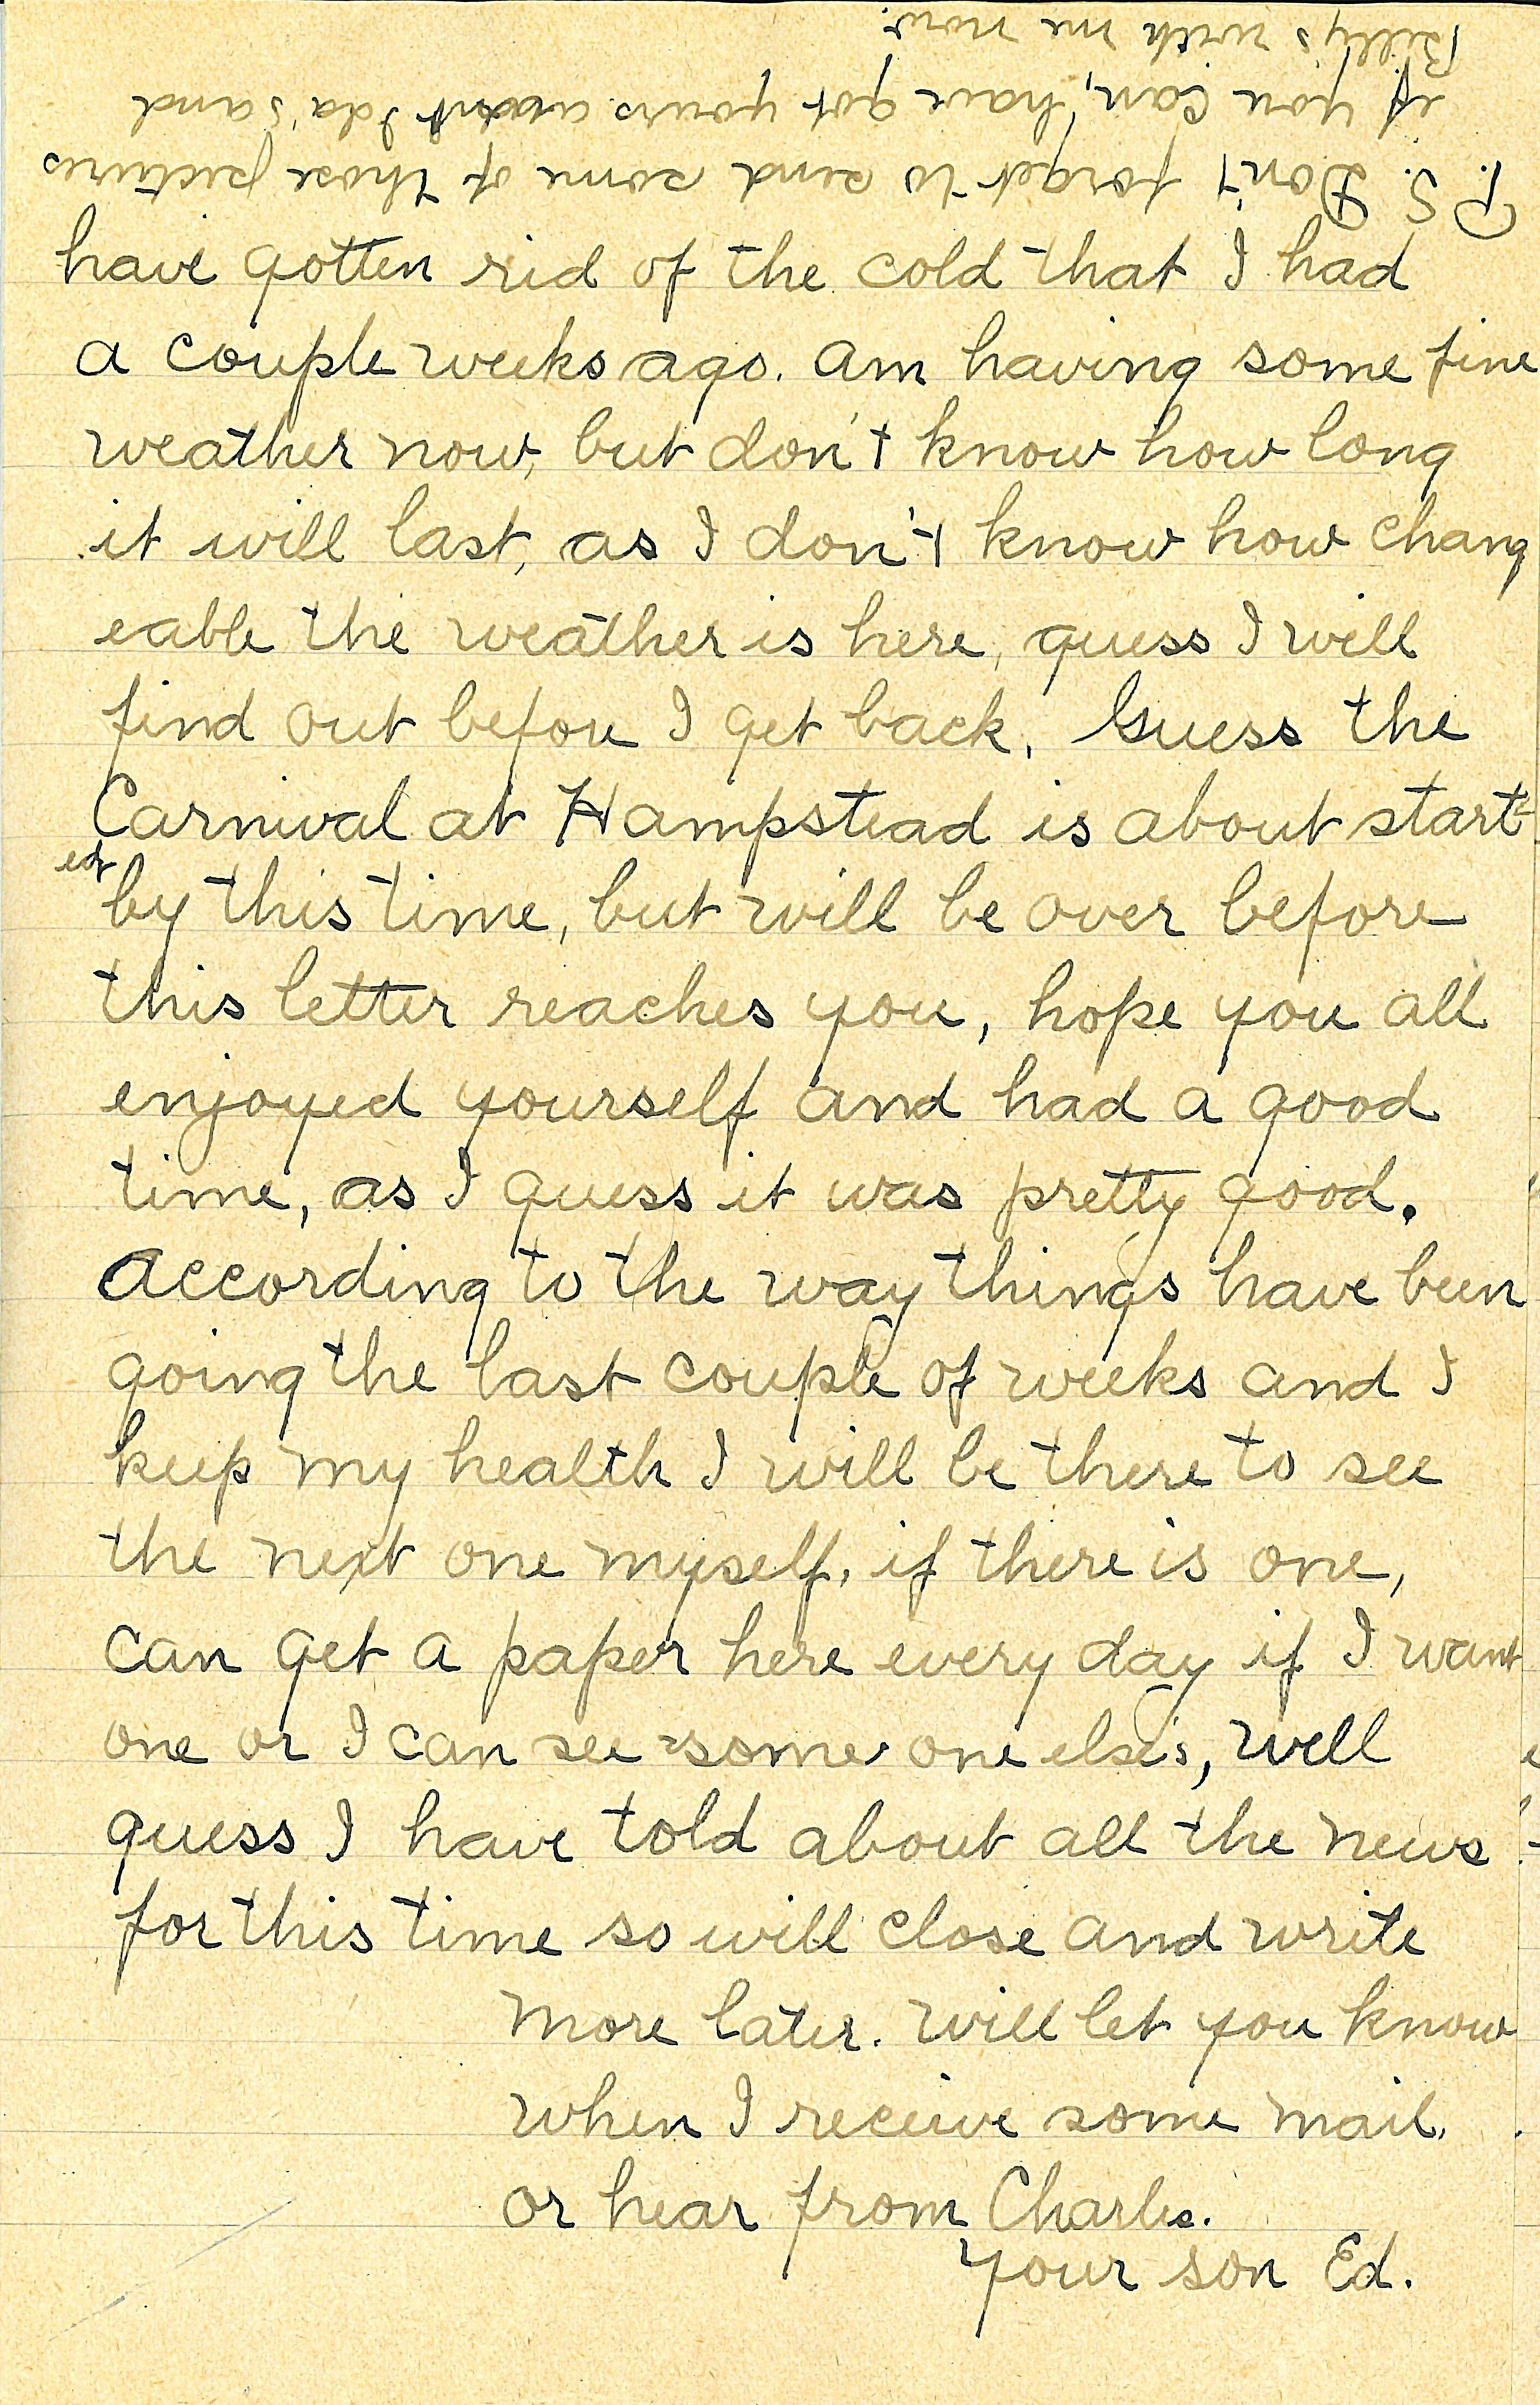 have gotten rid of the cold that I had
a couple weeks ago. Am having some fine
weather now, but don't know how long
it will last, as I don't know how chang
eable the weather is here, guess I will
find out before I get back. Guess the
Carnival at Hampstead is about start-
ed by this time, but will be over before
this letter reaches you, hope you all
enjoyed yourself and had a good
time, as I guess it was pretty good.
According to the way things have been
going the last couple of weeks and I
keep my health I will be there to see
the next one myself, if there is one,
can get a paper here every day if I want
one or I can see some one else's, well
guess I have told about all the news
for this time so will close and write
more later. Will let you know
when I receive some mail,
or hear from Charlie.
Your son Ed.
P.S. Don't forget to send some of those pictures
if you can, have got yours Ida's and
Billy's with me now.